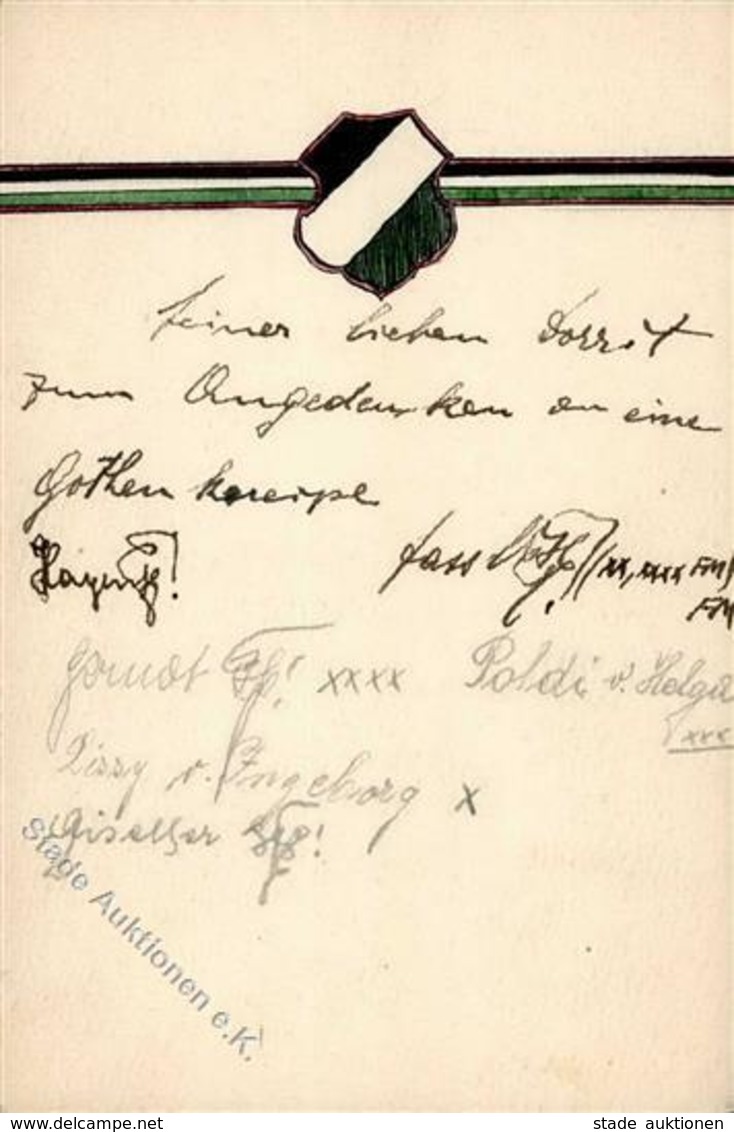 seiner lieben Dorrit
zum Angedenken an eine
Gothenkneipe
Hagen
xx, xxxx FM
FM
Gernot xxxx Poldi v. Helga
xxx
Lissy v. Ingeborg x
Giselher
Stade Auktionen e.K.
stade auktionen